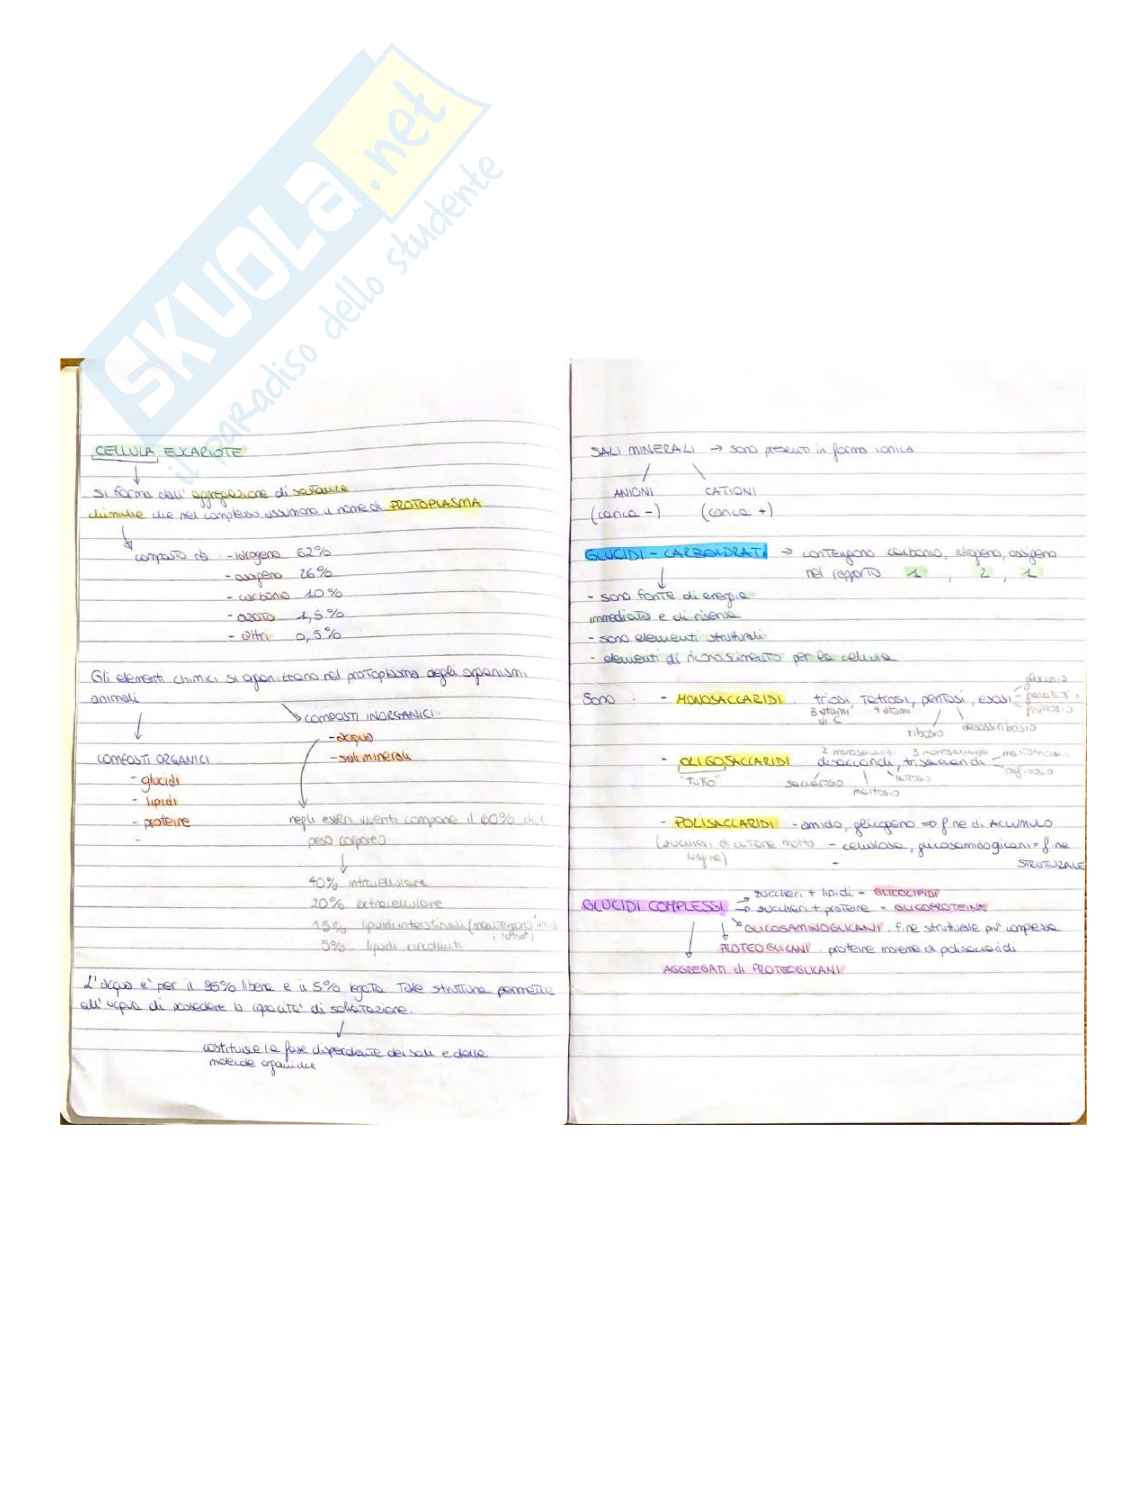 SKUOLA.net
il paradiso dello studente
CELLULA EUCARIOTE
Si forma dall' aggregazione di sostanze
chimiche che nel complesso assumono il nome di PROTOPLASMA
composto da - idrogeno 62%
- ossigeno 26%
- carbonio 10%
- azoto 1,5%
- altri 0,5%
Gli elementi chimici si concentrano nel protoplasma degli organismi
animali
COMPOSTI INORGANICI
- acqua
- sali minerali
COMPOSTI ORGANICI
- glucidi
- lipidi
- proteine
-
negli esseri viventi compone il 60% del
peso corporeo
40% intracellulare
20% extracellulare
15% liquidi interstiziali
5% liquidi circolanti
L'acqua è per il 95% libera e il 5% legata. Tale struttura permette
all'acqua di possedere la capacità di solvatazione.
costituisce la fase disperdente dei sali e delle
molecole organiche
SALI MINERALI → sono presenti in forma ionica
ANIONI CATIONI
(carica -) (carica +)
GLUCIDI - CARBOIDRATI → contengono carbonio, idrogeno, ossigeno
nel rapporto 1, 2, 1
- sono fonte di energia
immediata e di riserva
- sono elementi strutturali
- elementi di riconoscimento per le cellule
glucosio
Sono: - MONOSACCARIDI triosi, tetrosi, pentosi, esosi galattosio
3 atomi di C 4 atomi fruttosio
ribosio desossiribosio
2 monosaccaridi 3 monosaccaridi
- OLIGOSACCARIDI disaccaridi, trisaccaridi
raffinosio
saccarosio lattosio
maltosio
- POLISACCARIDI - amido, glicogeno => fine di ACCUMULO
(zuccheri di catene molto lunghe) - cellulosa, glucosaminoglicani = fine
- STRUTTURALE
→ zuccheri + lipidi = GLICOLIPIDI
GLUCIDI COMPLESSI → zuccheri + proteine = GLICOPROTEINE
GLICOSAMINOGLICANI: fine strutturale più complessa
PROTEOGLICANI: proteine insieme a polisaccaridi
AGGREGATI di PROTEOGLICANI